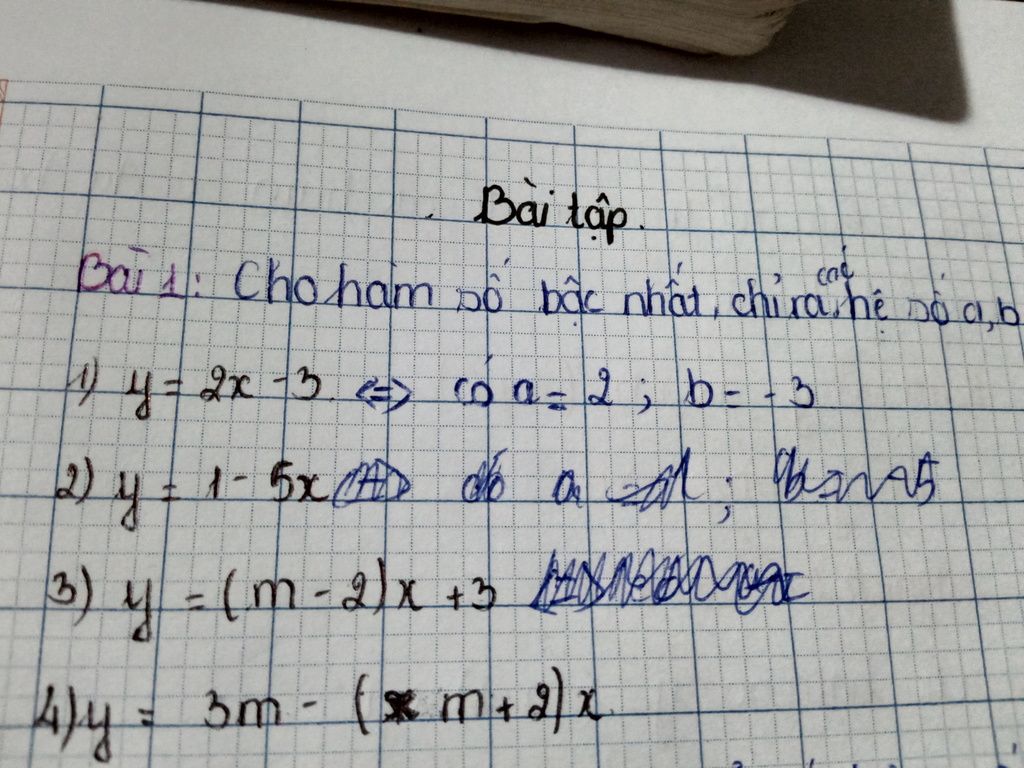 Bài tập.
Bài 1: Cho hàm số bậc nhất, chỉ ra các hệ số a, b
1) y = 2x - 3 <=> có a = 2 ; b = - 3
2) y = 1 - 5x
3) y = (m - 2)x + 3
4) y = 3m - ( m + 2)x